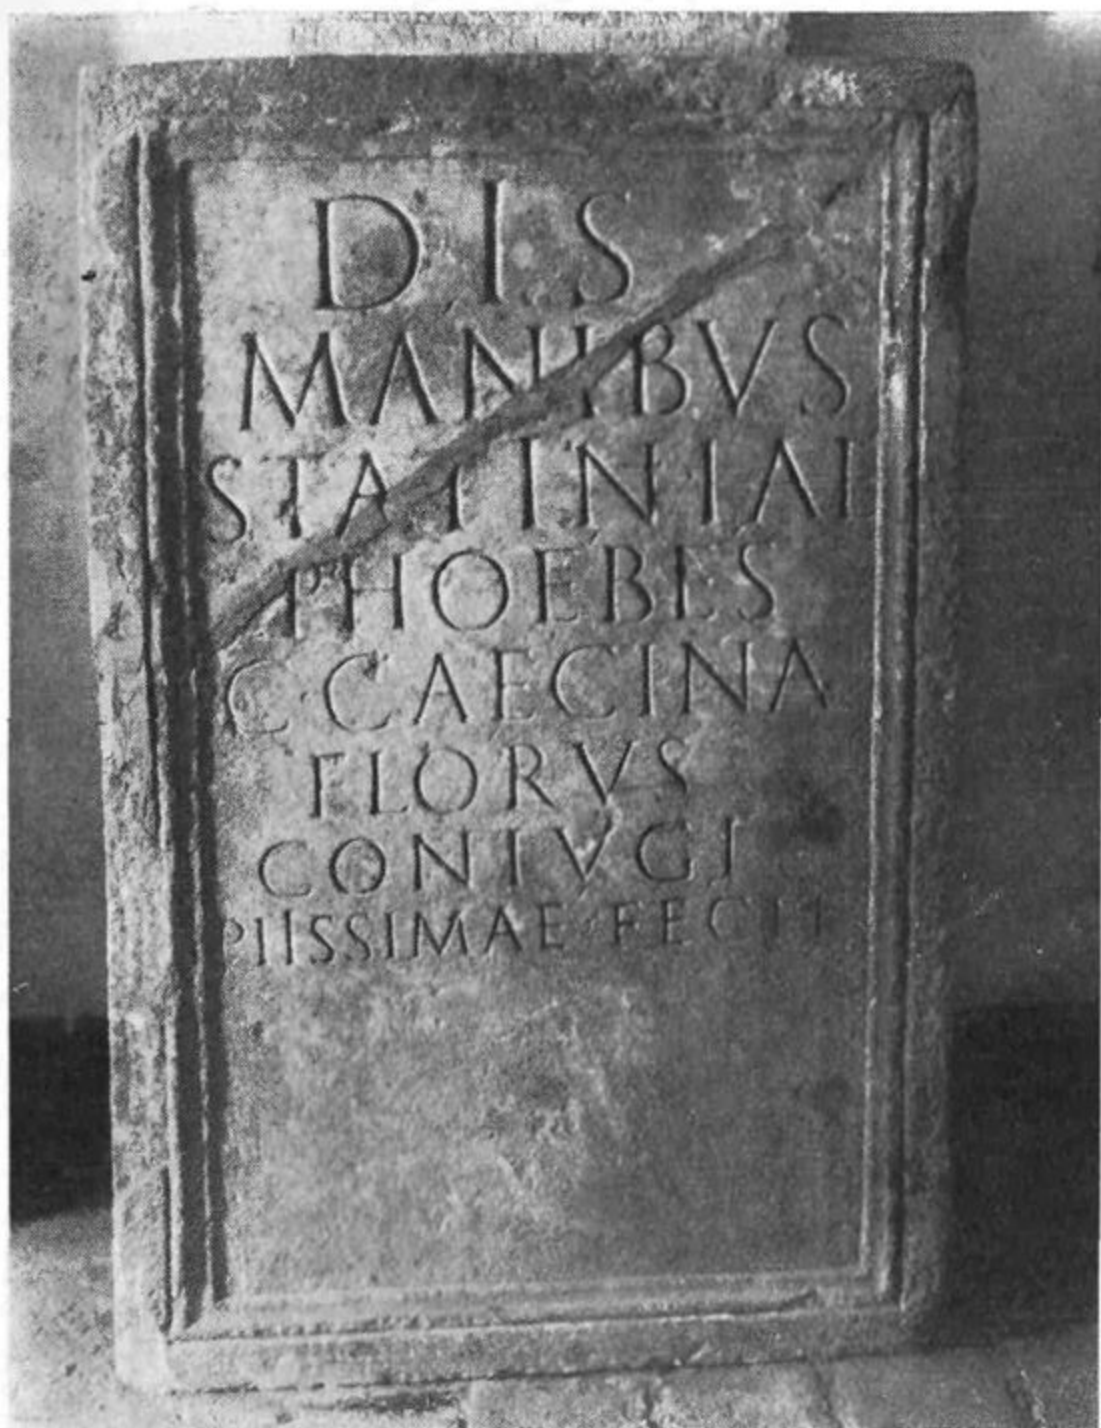 DIS
MANIBVS
STATINIAE
PHOEBES
C CAECINA
FLORVS
CONIVGI
PIISSIMAE FECIT